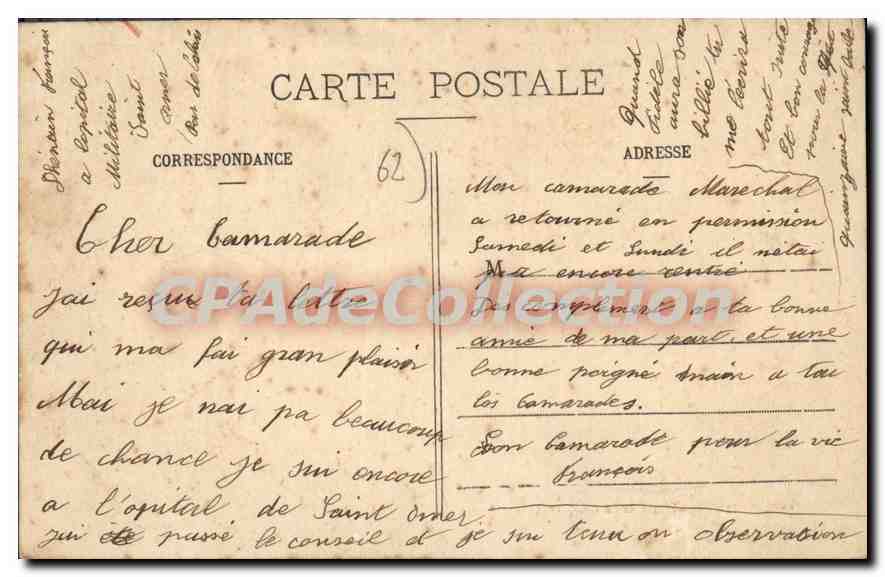 CARTE POSTALE
CORRESPONDANCE
ADRESSE
62
François
a lopital
Militaire
Saint
omer
Cher Camarade
jai reçue ta lettre
qui ma fai gran plaisir
Mai je nai pa beaucoup
de chance je sui encore
a l'opital de Saint Omer
jai été passé le conseil et je sui tenu on observation
Mon camarade Marechal
a retourné en permission
Samedi et Lundi il netai
M
pa encore rentré
Des complement a ta bonne
amie de ma part. et une
bonne poigné main a tou
les Camarades.
Ton Camarade pour la vie
françois
Quand
Fidele
aura son
billie tu
me lécrira
tout suite
Et bon courage
pour la
quainzaine saint
CPAdeCollection